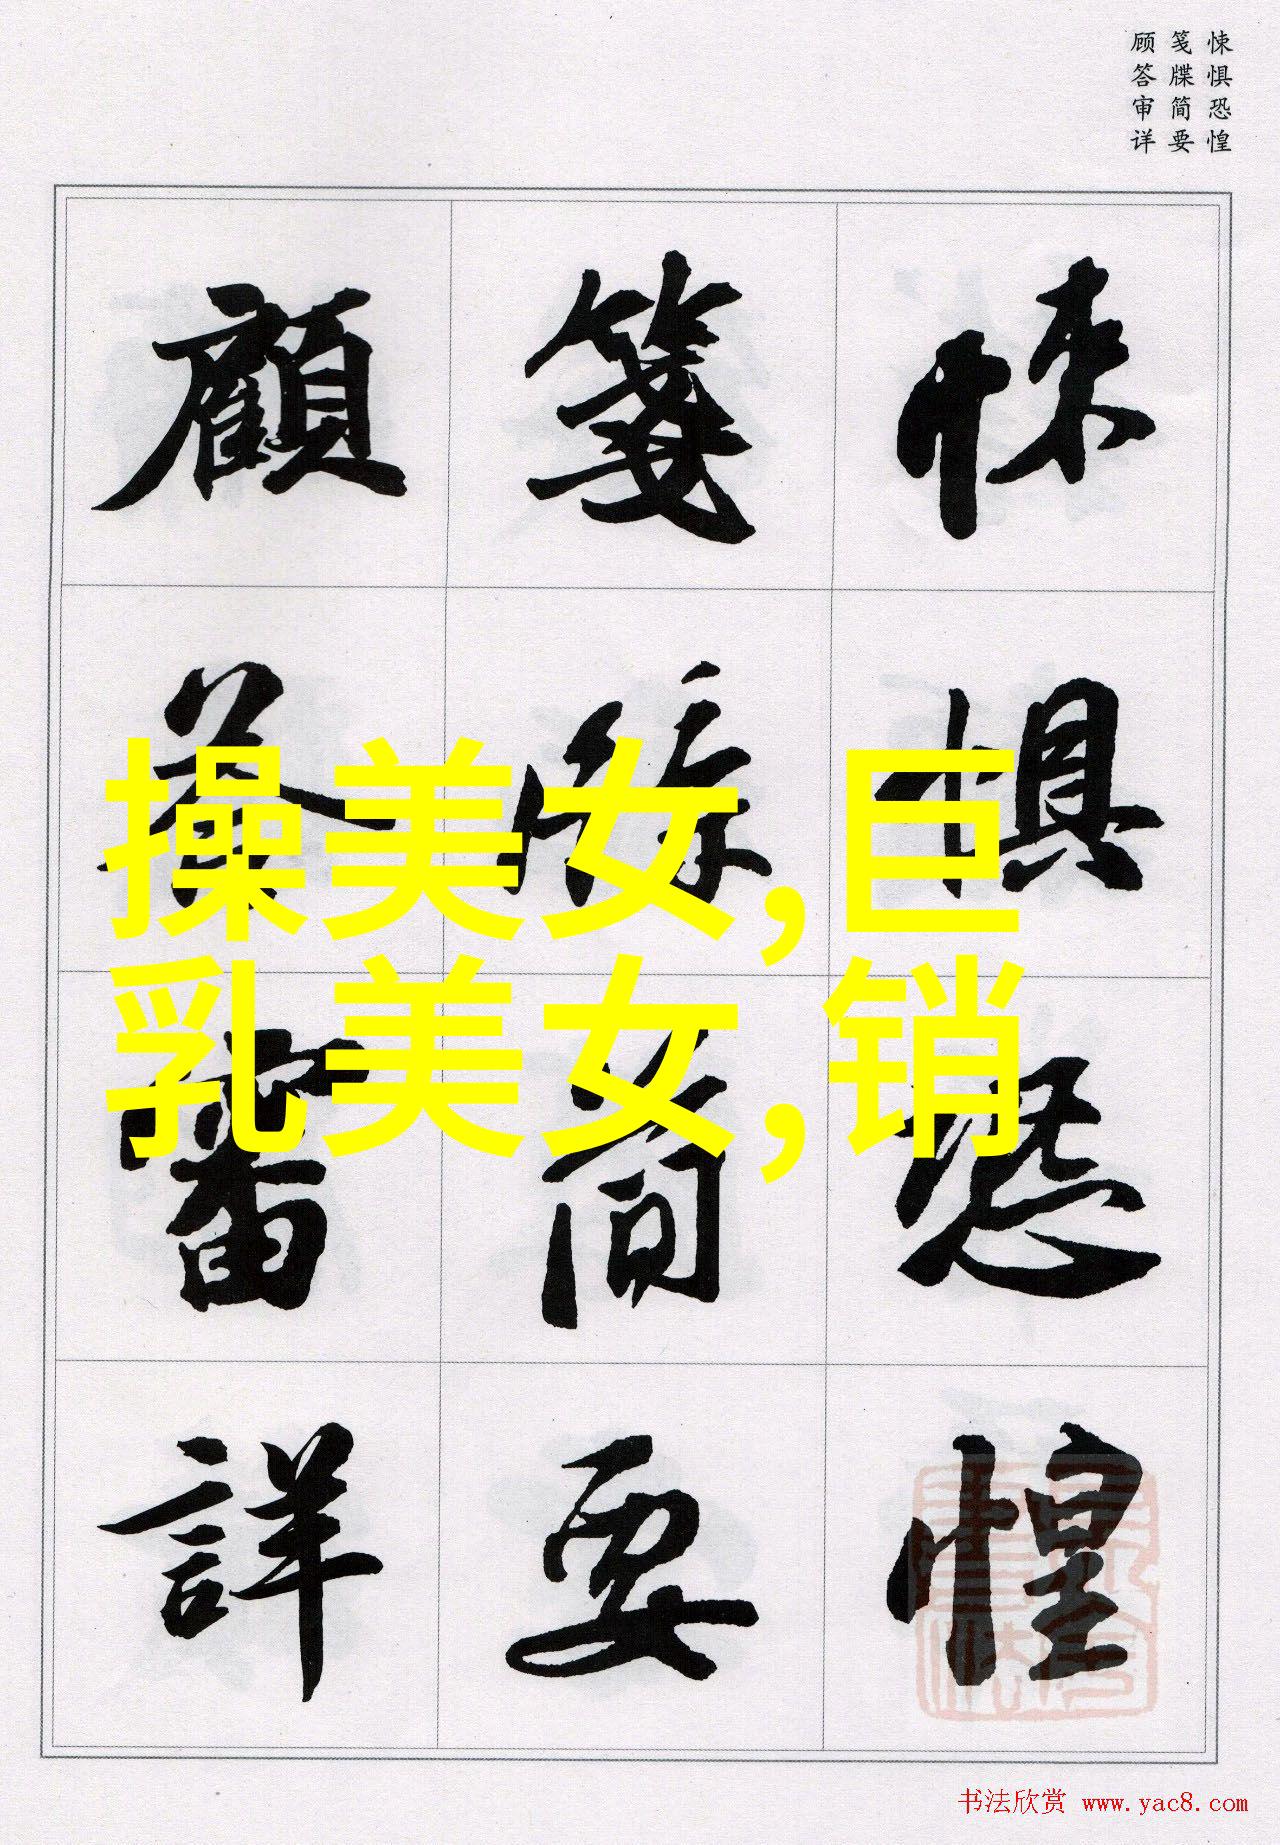 悚惧恐惶
笺牒简要
顾答审详
悚惧恐惶
笺牒简要
顧答審詳
操美女,巨
乳美女,销
书法欣赏 www.yac8.com